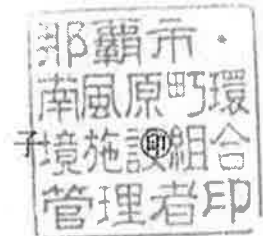 那覇市・
南風原町環
子境施設㊞組合
管理者印